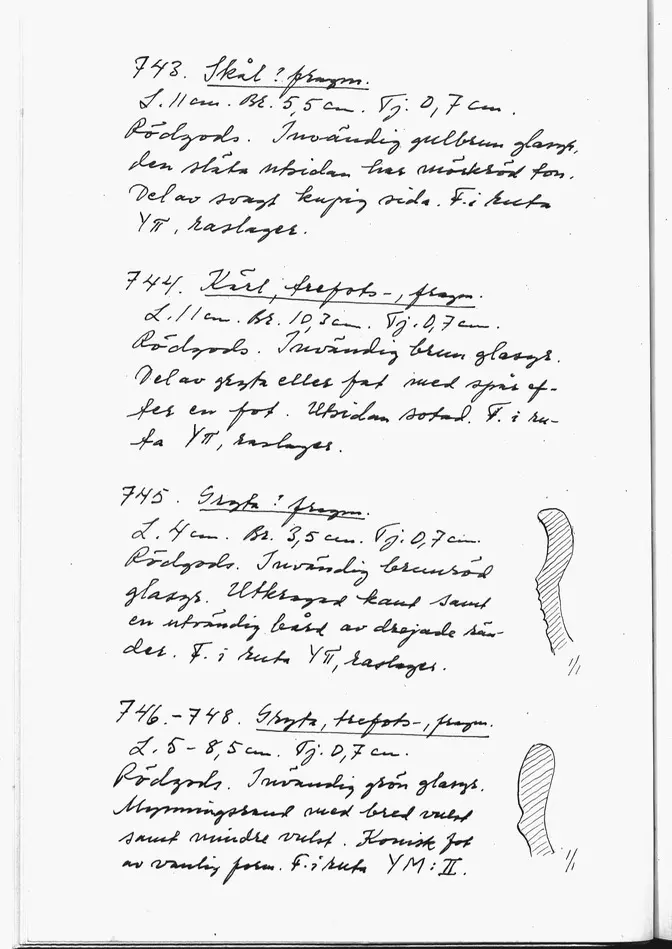 743. Skål? fragm.
L. 11 cm. Br. 5,5 cm. Tj. 0,7 cm.
Rödgods. Invändig gulbrun glasyr,
den släta utsidan har mörkröd ton.
Del av svagt kupig sida. F. i ruta
Yπ, raslager.
744. Kärl, trefots-, fragm.
L. 11 cm. Br. 10,3 cm. Tj. 0,7 cm.
Rödgods. Invändig brun glasyr.
Del av gryta eller fat med spår ef-
ter en fot. Utsidan sotad. F. i ru-
ta Yπ, raslager.
745. Gryta? fragm.
L. 4 cm. Br. 3,5 cm. Tj. 0,7 cm.
Rödgods. Invändig brunröd
glasyr. Utkragad kant samt
en utvändig bård av drejade rän-
der. F. i ruta Yπ, raslager.
1/1
746.-748. Gryta, trefots-, fragm.
L. 5-8,5 cm. Tj. 0,7 cm.
Rödgods. Invändig grön glasyr.
Mynningsrand med bred vulst
samt mindre vulst. Konisk fot
av vanlig form. F. i ruta YM:II.
1/1